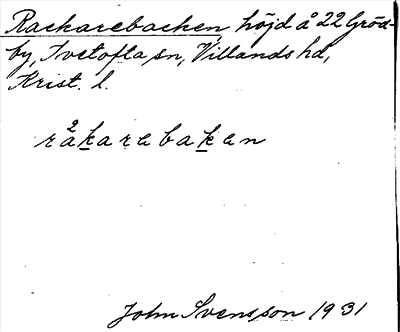 Rackarebacken höjd å 22 Gröd-
by, Ivetofta sn, Villands hd,
Krist. l.
råkarebaken
John Svensson 1931